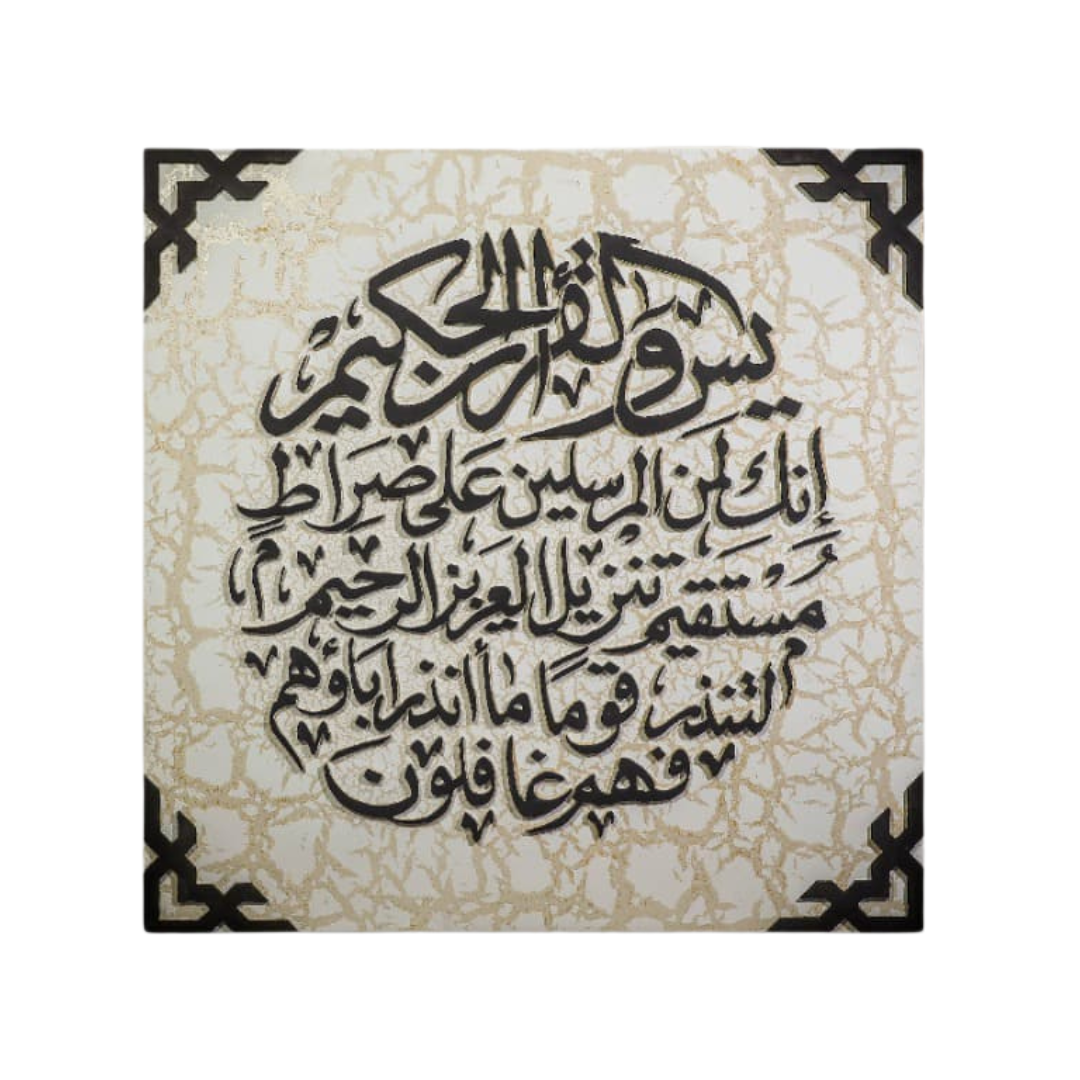 يس والقرآن الحكيم
إنك لمن المرسلين على صراط
مستقيم تنزيل العزيز الرحيم
لتنذر قوما ما أنذر اباؤهم
فهم غافلون